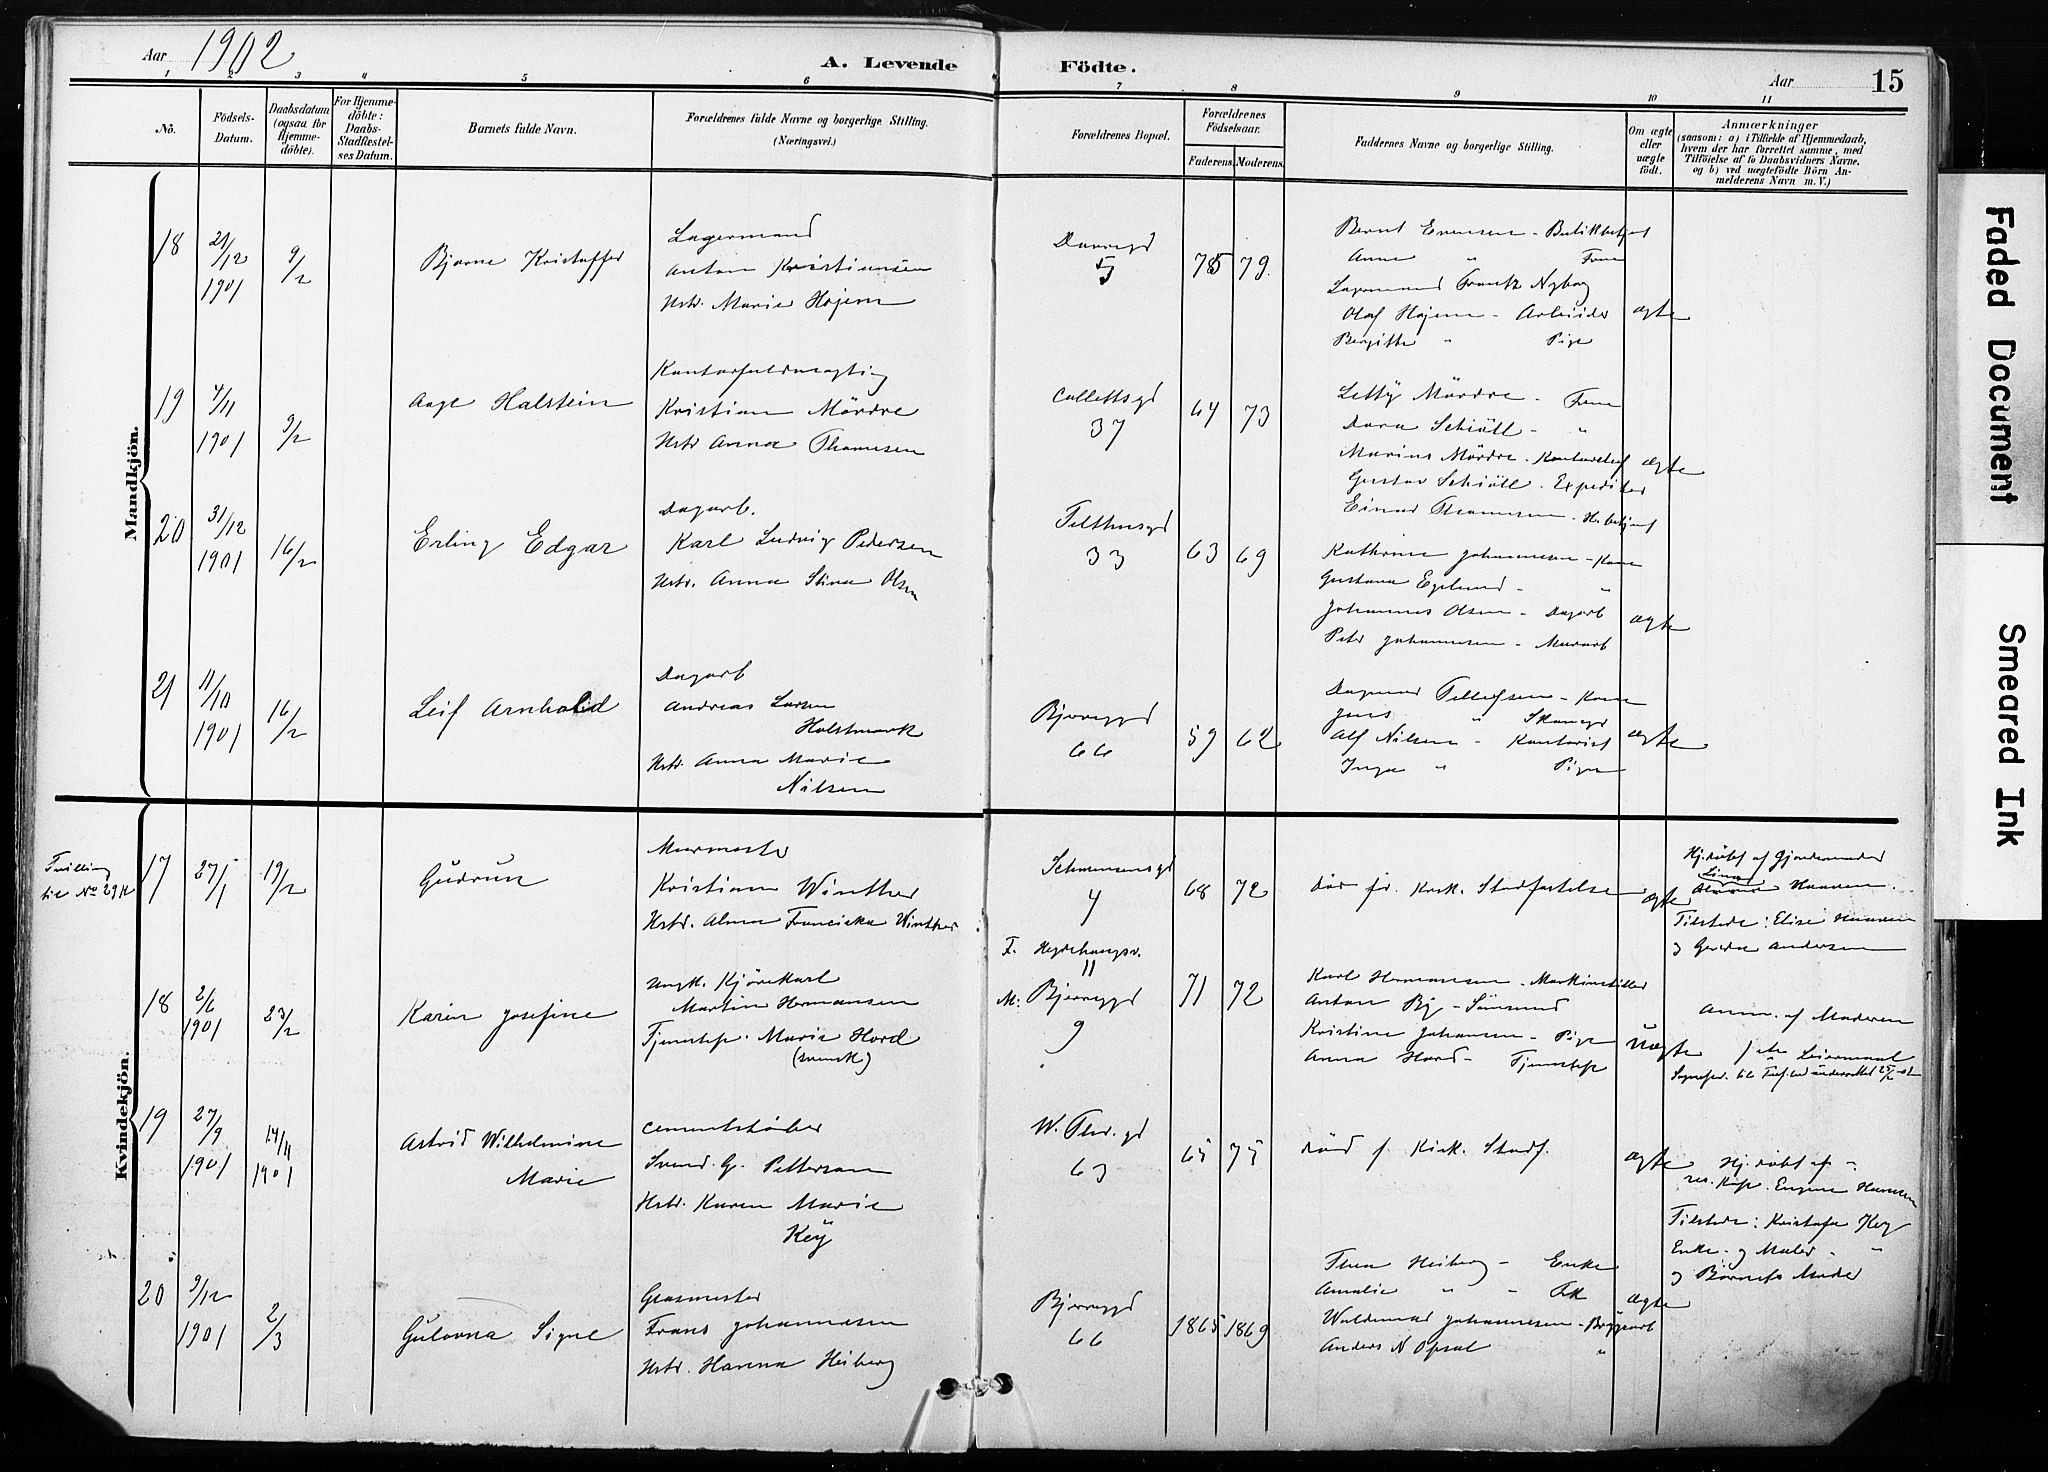 Aar 1902
A. Levende Födte.
Aar
15
1 2 3 4 5 6 7 8 9 10 11
No.
Födsels-Datum.
Daabsdatum (ogsaa for Hjemme-döbte).
For Hjemme-döbte: Daabs-Stadfæstel-ses Datum.
Barnets fulde Navn.
Forældrenes fulde Navne og borgerlige Stilling.
(Næringsvei.)
Forældrenes Bopæl.
Forældrenes Födselsaar.
Faderens. Moderens.
Faddernes Navne og borgerlige Stilling.
Om ægte eller uægte födt.
Anmærkninger
(saasom: a) i Tilfælde af Hjemmedaab,
hvem der har forrettet samme, med
Tilföielse af to Daabsvidners Navne.
og b) ved uægtefödte Börn An-
melderens Navn m. V.)
Mandkjön.
18
21/12 1901
9/2
Bjarne Kristoffer
Lagermand
Anton Kristiansen
Hstr. Marie Hojem
5
75 79.
Bernt Evensen - Butikbetjent
Anna " Frue
Lagermand Frantz Nyborg
Olaf Hojem - Arbeider
Bergitte " Pige
ægte
19
4/11 1901
9/2
Aage Halstein
Kontorfuldmægtig
Kristian Mördre
Hstr Anna Thomesen
Collettsgd
37
64 73
Letty Mördre - Frue
Dora Schiöll - "
Marius Mördre - Kontorchef
Gustav Schiöll - Expeditør
Einar Thomesen - H.betjent
ægte
20
31/12 1901
16/2
Erling Edgar
Dagarb.
Karl Ludvig Pedersen
Hstr. Anna Stina Olsen
Telthusgd
33
63 69
Kathrine Johannesen - Kone
Gustava Egelund - "
Johannes Olsen - Dagarb
Peter Johannesen - Murarb
ægte
21
11/10 1901
16/2
Leif Arnhold
Dagarb
Andreas Larsen
Holstmark
Hstr. Anna Marie
Nilsen
Bjerregd
66
59 62
Dagmar Tellefsen - Kone
Jens "
Alf Nilsen - Kontorist
Inga " Pige
ægte
Kvindekjön.
Tvilling
til No 29
17
27/1
19/2
Gudrun
Murmester
Kristian Winther
Hstr. Alma Franciska Winther
4
68 72
Död før Kirk. Stadfæstelse
ægte
Hj.döbt af Gjordemoder
Lina Haavem.
Tilstede: Elise Haavem
og Gerda Andersen
18
2/6 1901
23/2
Karin Josefine
Ungk. Kjörekarl
Martin Hermansen
Tjenestep. Marie Hord
(svensk)
F. Hegdehaugsv.
11
M: Bjerregd
9
71 72
Karl Hermansen - Maskinstiller
Anton By - Sömand
Kristine Johansen - Pige
Anna Hord - Tjenestep
Uægte
Anm. af Moderen
1ste Leiermaal
19
27/9 1901
14/11 1901
Astrid Wilhelmine
Marie
Cementstøber
Svend G. Petterson
Hstr. Karen Marie
Key
W. Thr. gd
63
65 75
Död f. Kirk. Stadf.
ægte
Hj. döbt af -
res. Kap. Eugene Hanssen
Tilstede: Kristofa Key
Enke - og Maler - "
og Barnets Moder
20
9/12 1901
2/3
Gulovna Signe
Glasmester
Frans Johannesen
Hstr. Hanna Heiberg
Bjerregd
66
1865 1869
Thea Heiberg - Enke
Amalie " - Frk
Waldemar Johannesen - Bryggearb
Anders N Opsal "
ægte
Faded Document
Smeared Ink